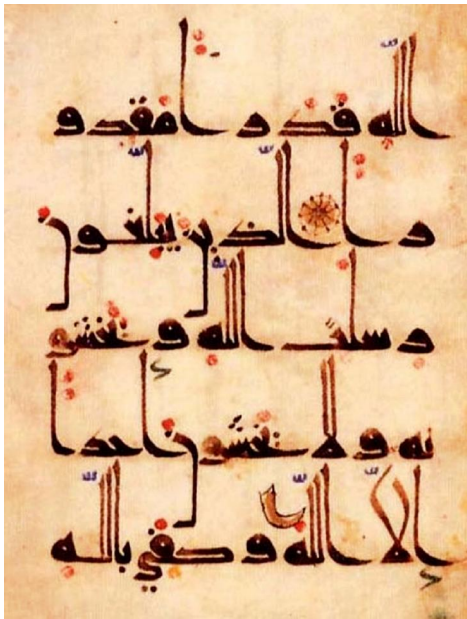 الله قدرا مقدو
را الذين يبلغون
رسلت الله و يخشو
نه و لا يخشون احدا
إلا الله و كفى بالله